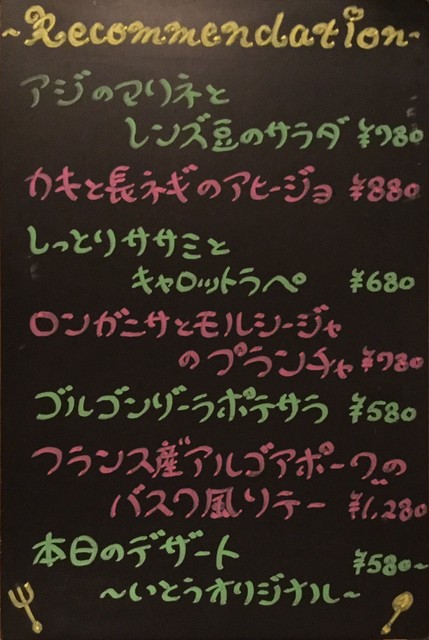 ~Recommendation~
アジのマリネと
レンズ豆のサラダ ¥780
カキと長ネギのアヒージョ ¥880
しっとりササミと
キャロットラペ ¥680
ロンガニサとモルシージャ
のプランチャ ¥780
ゴルゴンゾーラポテサラ ¥580
フランス産アルゴアポーグの
バスク風ソテー ¥1,280
本日のデザート ¥580~
~いとうオリジナル~